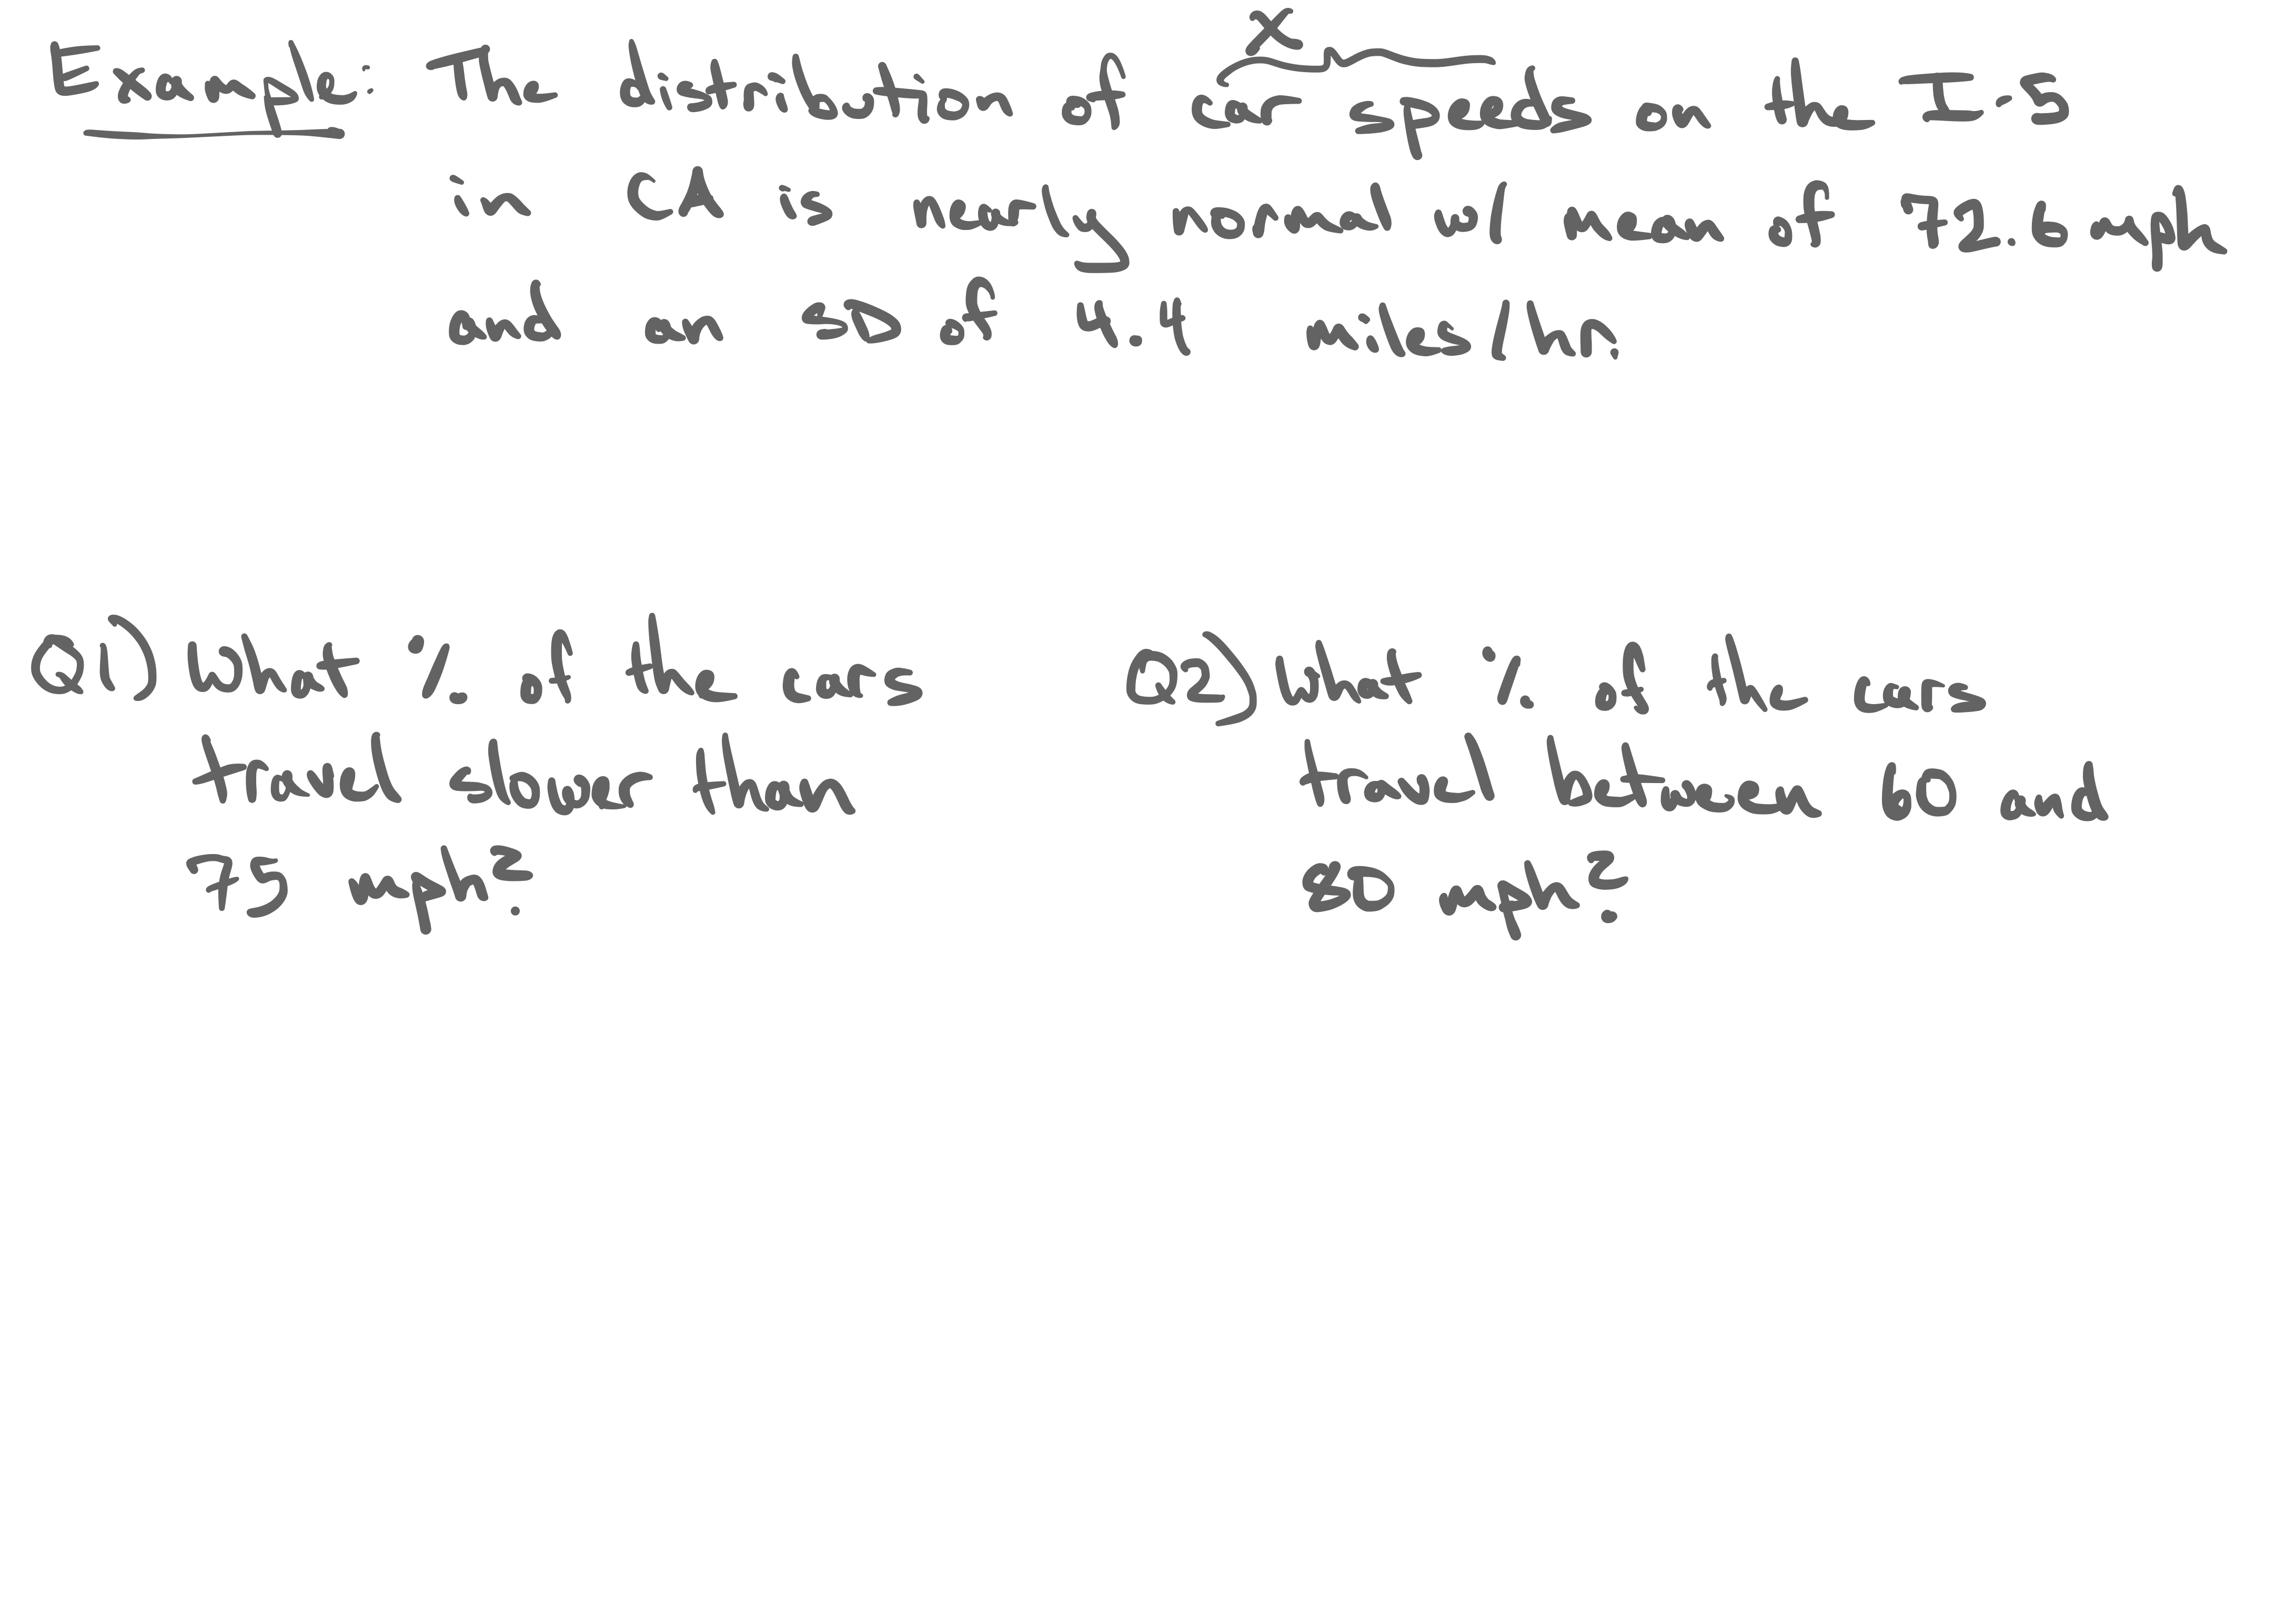 X
Example: The distribution of car speeds on the I-5
in CA is nearly normal w/ mean of 72.6 mph
and an SD of 4.4 miles/hr.
Q1) What % of the cars
travel slower than
75 mph?
Q2) What % of the cars
travel between 60 and
80 mph?